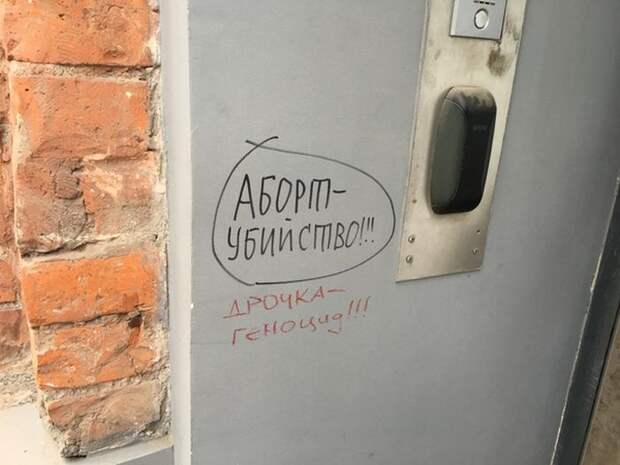 АБОРТ-
УБИЙСТВО!!!
ДРОЧКА-
ГЕНОЦИД!!!